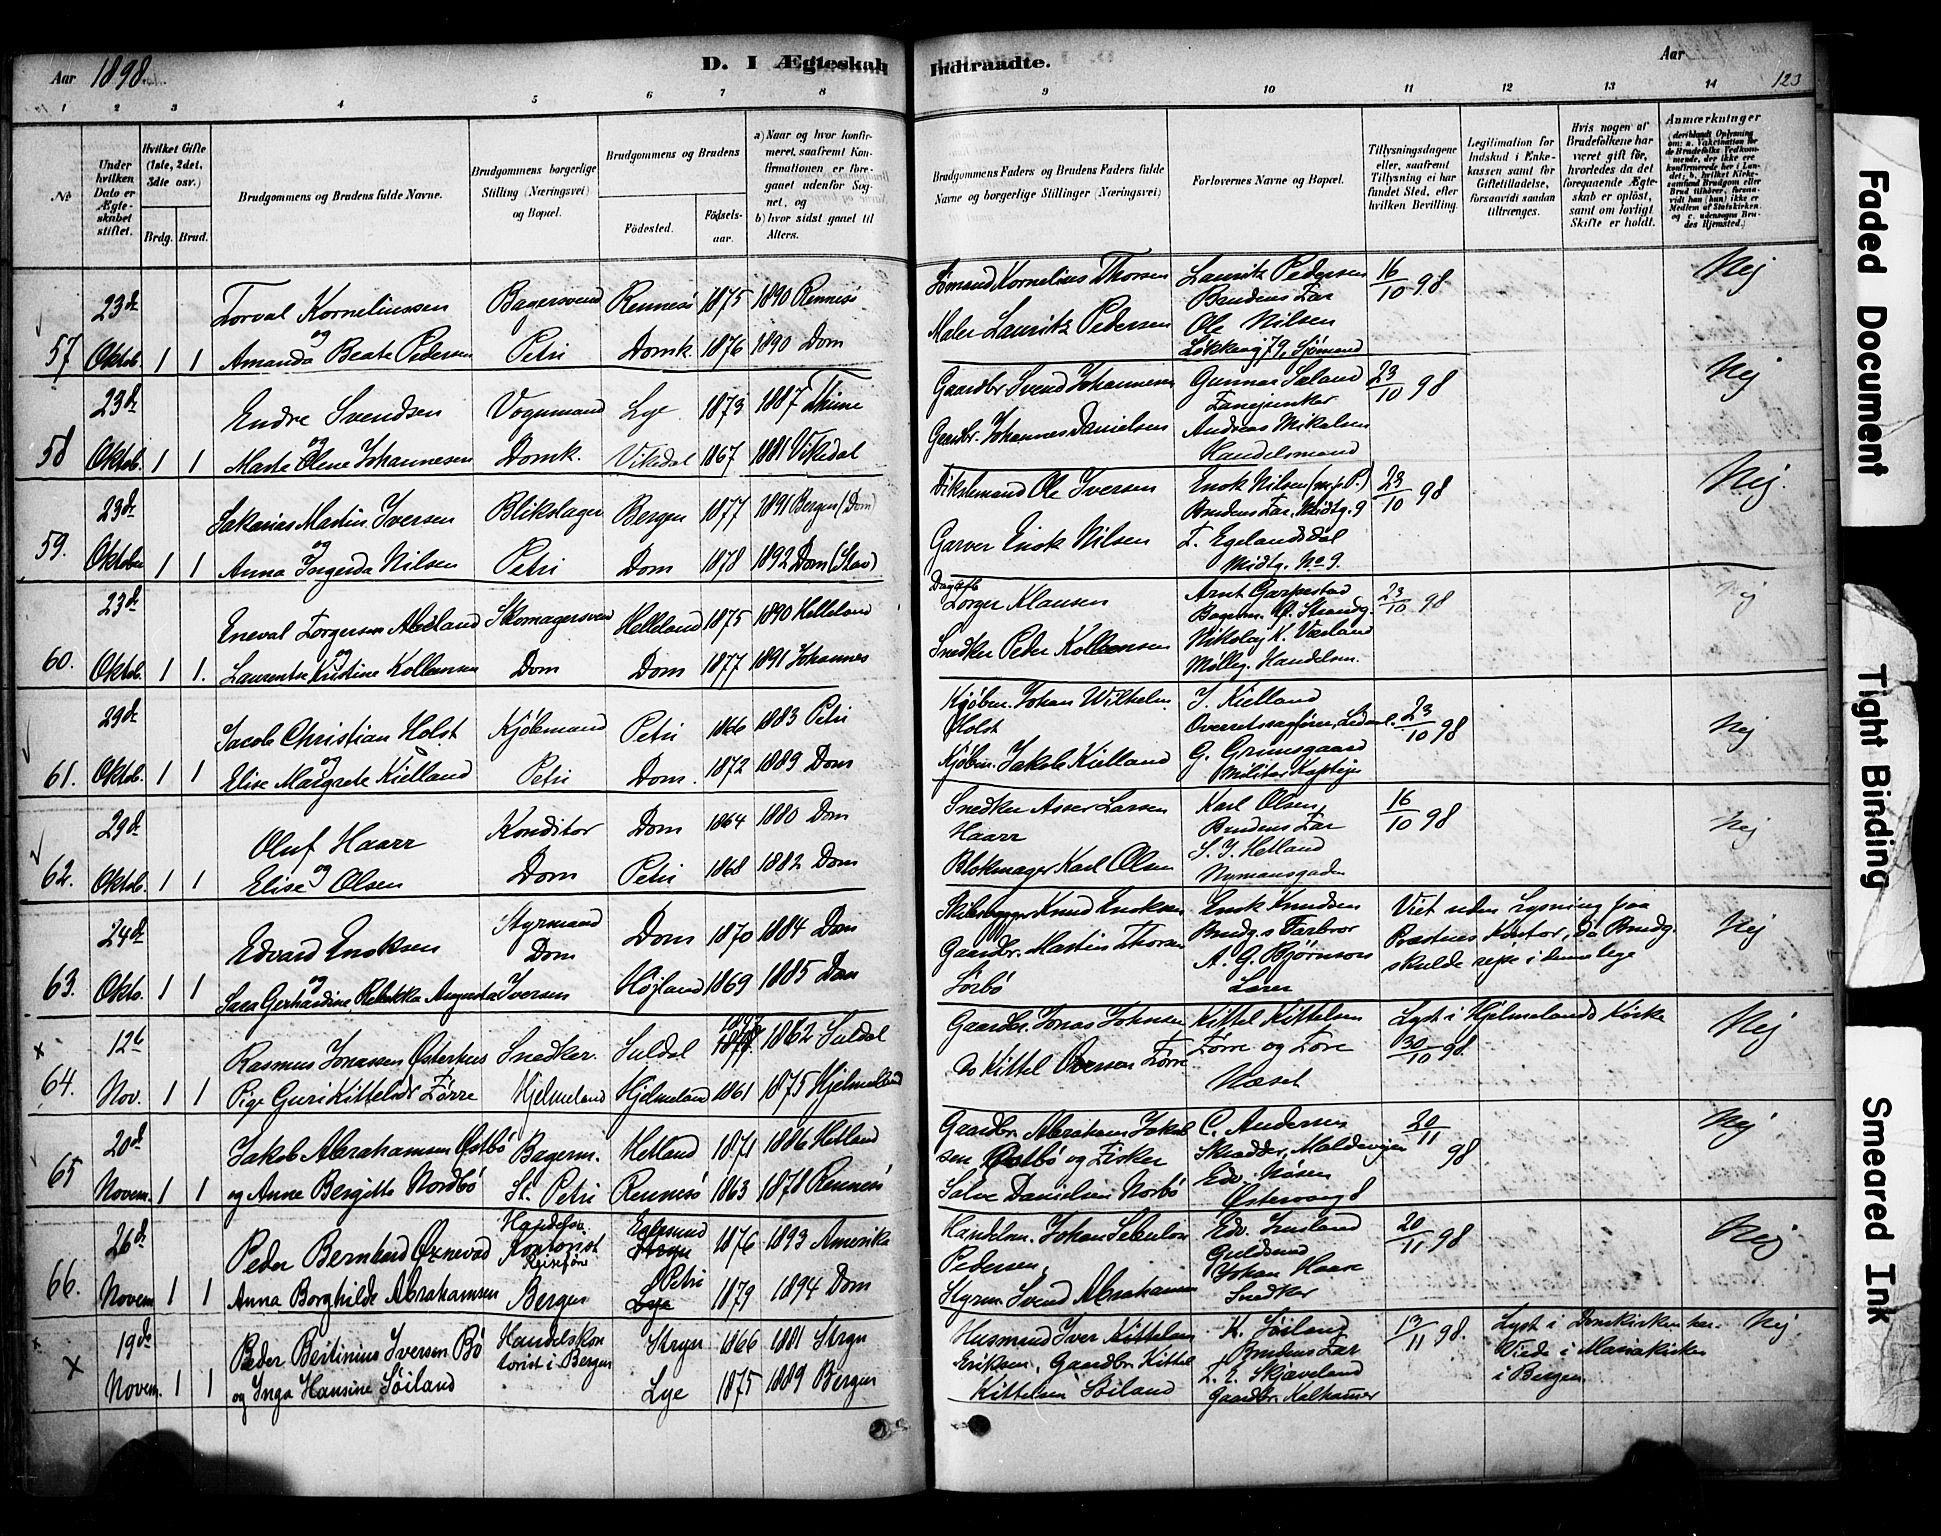 Aar 1898. D. I Ægteskab Indtraadte. Aar 123
1 2 3 4 5 6 7 8 9 10 11 12 13 14
No
Under hvilken Dato er Ægteskabet stiftet.
Hvilket Gifte (1ste, 2det, 3die osv.)
Brdg. Brud.
Brudgommens og Brudens fulde Navne.
Brudgommens borgerlige Stilling (Næringsvei) og Bopæl.
Brudgommens og Brudens
Fødested.
Fødselsaar.
a) Naar og hvor konfirmeret, saafremt Konfirmationen er foregaaet udenfor Sognet, og
b) hvor sidst gaaet til Alters.
Brudgommens Faders og Brudens Faders fulde Navne og borgerlige Stillinger (Næringsvei)
Forlovernes Navne og Bopæl.
Tillysningsdagene eller, saafremt Tillysning ei har fundet Sted, efter hvilken Bevilling.
Legitimation for Indskud i Enkekassen samt for Giftetilladelse, forsaavidt saadan tiltrænges.
Hvis nogen af Brudefolkene har været gift før, hvorledes da det foregaaende Ægteskab er opløst, samt om lovligt Skifte er holdt.
Anmærkninger
57 23de Oktob. 1 1
Torval Korneliussen Bagersvend Rennesø 1875 1890 Rennesø
og Amanda Beate Pedersen Petri Domk. 1876 1890 Dom
Sømand Kornelius Thorsen
Maler Lauritz Pedersen
Lauritz Pedersen
Brudens Far
Ole Nilsen
Løkkevej 79, Sjømand
16/10 98
Nej
58 23de Oktob. 1 1
Endre Svendsen Vognmand Lye 1873 1887 Thime
og Marte Olene Johannesen Domk. Vikedal 1867 1881 Vikedal
Gaardbr. Svend Johannesen
Gaardbr. Johannes Danielsen
Gunnar Saland
Fanejunker
Andreas Mikalsen
Handelsmand
23/10 98
Nej
59. 23de Oktober 1 1
Sakarias Martin Iversen Blikslager Bergen 1877 1891 Bergen (Dom)
og Anna Ingerda Nilsen Petri Dom 1878 1892 Dom (Stav)
Ole Iversen
Garver Enok Nilsen
Enok Nilsen
Brudens Far, Midtg. 9
T. Egelandsdal
Midtg. No 9.
23/10 98
Nej.
60. 23de Oktob. 1 1.
Eneval Torgersen Abeland Skomagersvend Helleland 1875 1890 Helleland
og Laurentse Kristine Kollensen Dom Dom 1877 1891 Johannes
Torger Klausen
Snedker Peder Kollensen
Arnt Garpestad
Nikolaj K. Værland
Mølleg. Handelsm.
23/10 98
Nej
61. 29de Oktob. 1 1
Jacob Christian Holst Kjøbmand Petri 1866 1883 Petri
og Elise Margrete Kielland Petri Dom. 1872 1889 Dom
Kjøbm. Johan Wilhelm Holst
Kjøbm. Jakob Kielland
J. Kielland
Overretssagfører, Ledaal.
G. Grimsgaard
Militær Kaptejn
23/10 98
Nej
62. 29de Oktob. 1 1
Oluf Haarr Konditor Dom 1864 1880 Dom
og Elise Olsen Dom Petri 1868 1882 Dom
Snedker Asser Larsen
Haarr
Blokmager Karl Olsen
Karl Olsen,
Brudens Far
S. J. Hetland
Nymansgaden
16/10 98
Nej
63. 24de Okto. 1 1
Edvard Enoksen Styrmand Dom 1870 1884 Dom
Dom
og Sara Gerhardine Rebekka Augusta Iversen Højland 1869 1885 Dom
Skibsbygger Knud Enoksen
Gaardbr. Martin Thorsen
Sørbø
Enok Knudsen
Brudg.s Farbror
A. G. Bjørnson
Lærer
Viet uden Lysning paa
Præstens Kontor, da Brudg.
skulde rejse
Nej
64. 12te Nov. 1 1
Rasmus Jonassen Østerhus Snedker. Suldal 1862 Suldal
Pige Guri Kittelsdr Førre Hjelmeland Hjelmeland 1861 1875 Hjelmeland
Gaardbr. Jonas Johnsen
Do Kittel Oversen Førre
Kittel Kittelsen
Førre og Tore
Næset
Lyst i Hjelmelands Kirke
30/10 98.
Nej
65 20de Novem. 1 1
Jakob Abrahamsen Østbø Bagerm. Hetland 1871 1886 Hetland
og Anne Bergitte Nordbø St. Petri Rennesø 1863 1878 Rennesø
Gaardbr. Abraham Jakobsen Østbø og Fisker
Salve Danielsen Norbø
C. Andersen
Skrædder, Maldevejen
Edv. Nøsen
Østervåg 8
20/11 98
Nej
66. 26de Novem. 1 1
Peder Bernhard Øxnevad Handelsr. Kontorist Egersund 1876 1893 Amerika
Anna Borghilde Abrahamsen Bergen Petri 1879 1894 Dom
Handelsm. Johan
Pedersen,
Styrm. Svend Abrahamsen
Guldsmed
Johan Haare
Snedker
20/11 98
Nej
19de Novem. 1 1
Peder Bertinius Iversen Bø Handelskontorist i Bergen Stryn 1866 1881 Stryn
og Inga Hansine Søiland Lye 1875 1889 Bergen
Husmand Iver Kittelsen
Eriksen, Gaardbr. Kittel
Kittelsen Søiland
K. Søiland
Brudens Far
Skjæveland
Gaardbr. Kalhammer
13/11 98.
Lyst i Domkirken her.
Viede i Mariakirken
i Bergen
Nej
Faded Document
Tight Binding
Smeared Ink